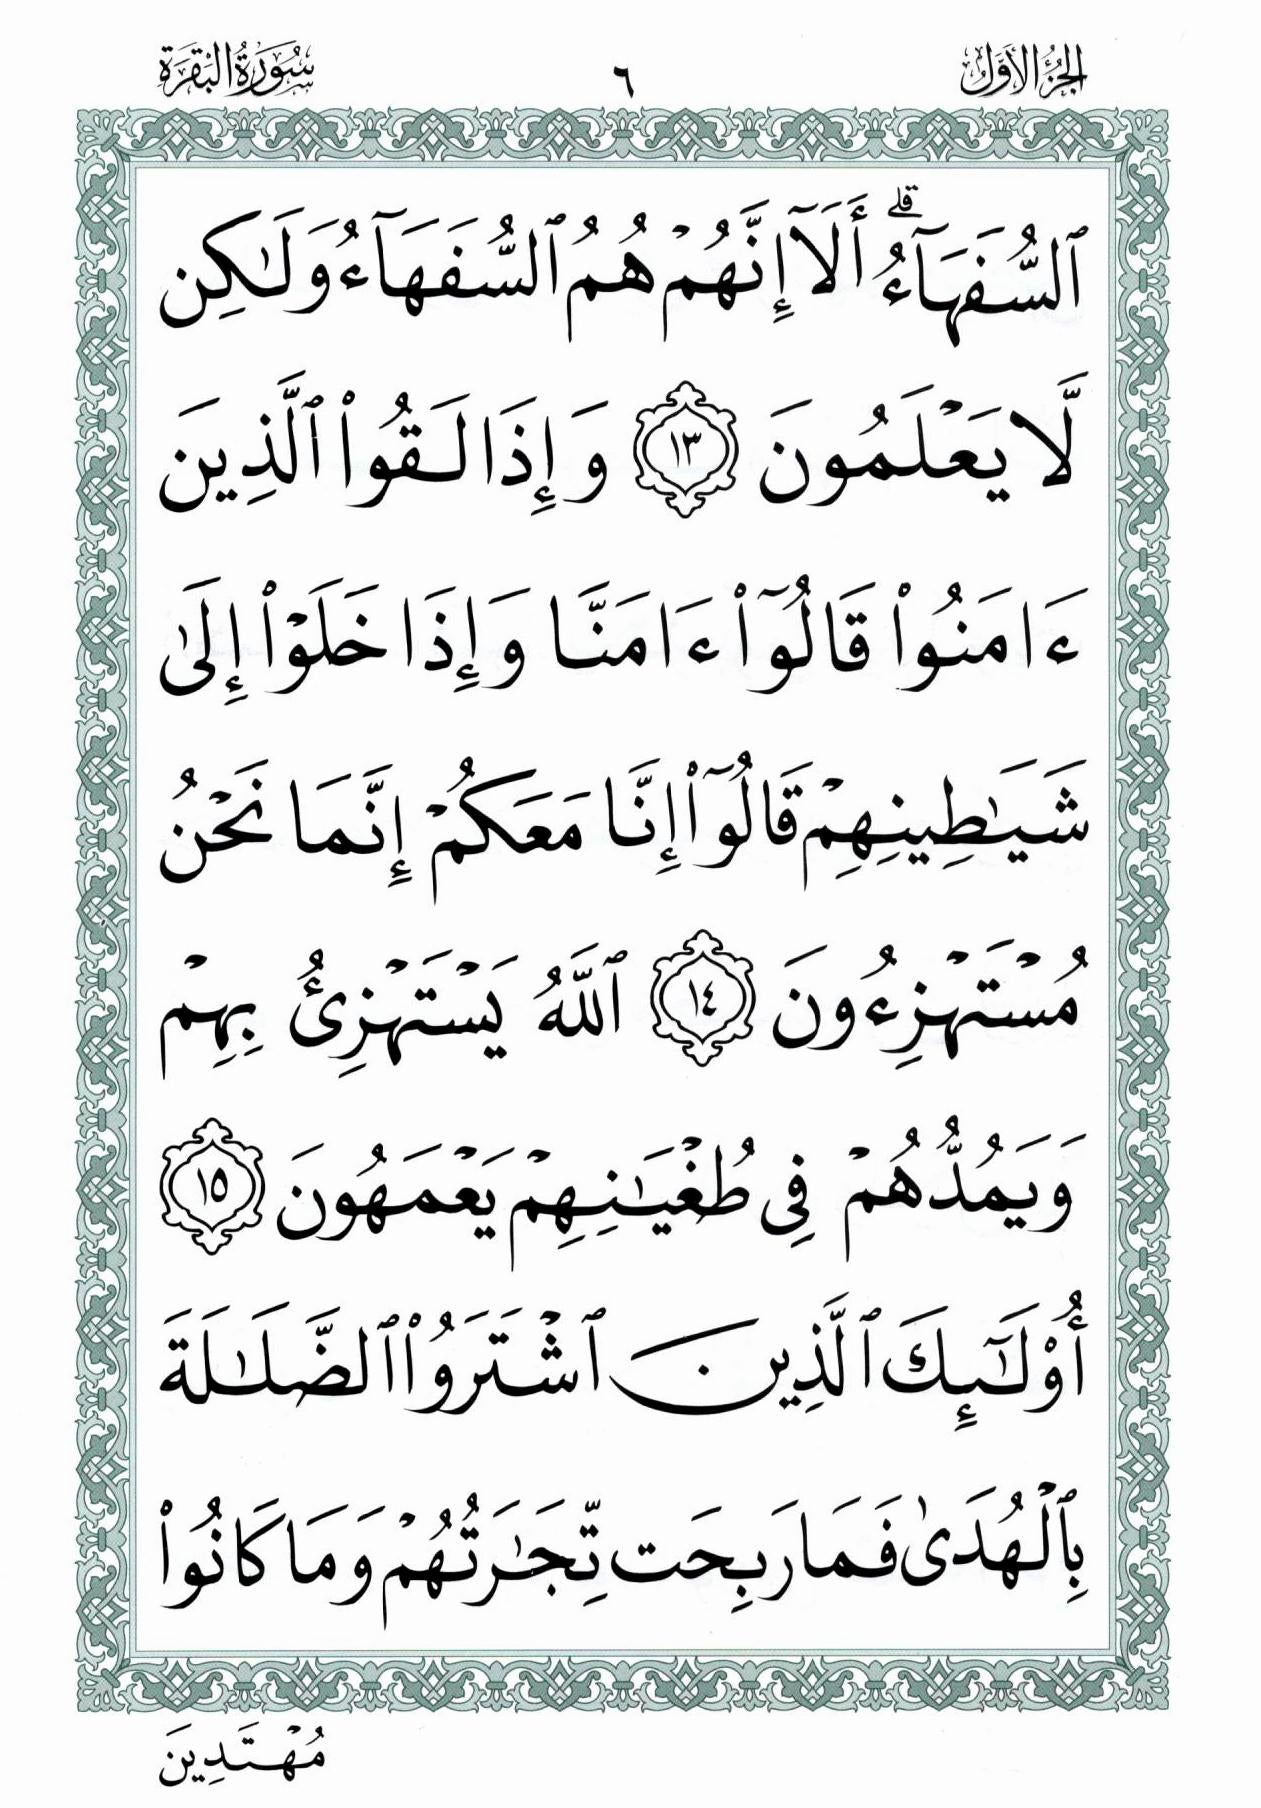 الجزء الأول
٦
سورة البقرة
ٱلسُّفَهَآءُ ۗ أَلَآ إِنَّهُمْ هُمُ ٱلسُّفَهَآءُ وَلَـٰكِن
لَّا يَعْلَمُونَ ١٣ وَإِذَا لَقُوا۟ ٱلَّذِينَ
ءَامَنُوا۟ قَالُوٓا۟ ءَامَنَّا وَإِذَا خَلَوْا۟ إِلَىٰ
شَيَـٰطِينِهِمْ قَالُوٓا۟ إِنَّا مَعَكُمْ إِنَّمَا نَحْنُ
مُسْتَهْزِءُونَ ١٤ ٱللَّهُ يَسْتَهْزِئُ بِهِمْ
وَيَمُدُّهُمْ فِى طُغْيَـٰنِهِمْ يَعْمَهُونَ ١٥
أُو۟لَـٰٓئِكَ ٱلَّذِينَ ٱشْتَرَوُا۟ ٱلضَّلَـٰلَةَ
بِٱلْهُدَىٰ فَمَا رَبِحَت تِّجَـٰرَتُهُمْ وَمَا كَانُوا۟
مُهْتَدِينَ